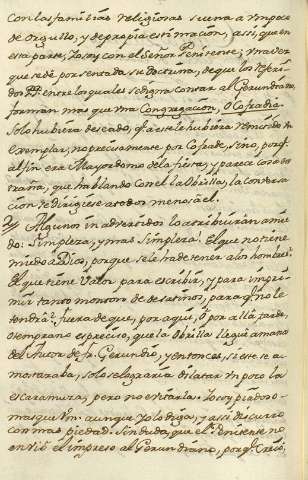 con las familias religiosas suena a un poco
de orgullo, y de propia estimacion, assi, que en
esta parte, Yo soy con el Señor Penitente; una vez
que se dè por sentada su doctrina, de que los Referi-
dos PP. entre los quales se digna contar al Gerundiano,
forman mas que una Congregacion, o Cofradia.
Solo hubiera deseado, qe. a este le hubiera remitido un
exemplar, no precisamente por Cofrade, sino, porqe.
al fin era Mayordomo de la fiesta, y parece cosa es-
traña, que hablando con el la Obrilla, la conversa-
cion se dirigiesse a todos menos a el.
Algunos inadvertidos lo atribuiràn a mie-
do: Simpleza, y mas Simpleza! El que no tiene
miedo a Dios, porque se le ha de tener a los hombres?
El que tiene valor para escribir, y para impri-
mir tanto monton de desatinos, para qe. no le
tendrà? fuera de que, por aqui, ò por alli, tarde,
ò temprano es preciso, que la Obrilla llegue à manos
del Autor de fr. Gerundio, y entonces, si este se a-
mostazaba, solo se lograria dilatar un poco la
escaramuza, pero no evitarla. Yo soy piadoso
mas que un. aunque Yo lo diga, y assi discurro
con mas piedad. Sin duda, que el Pe. Penitente no
embiò el impreso al Gerundiano, porqe. Creiò,